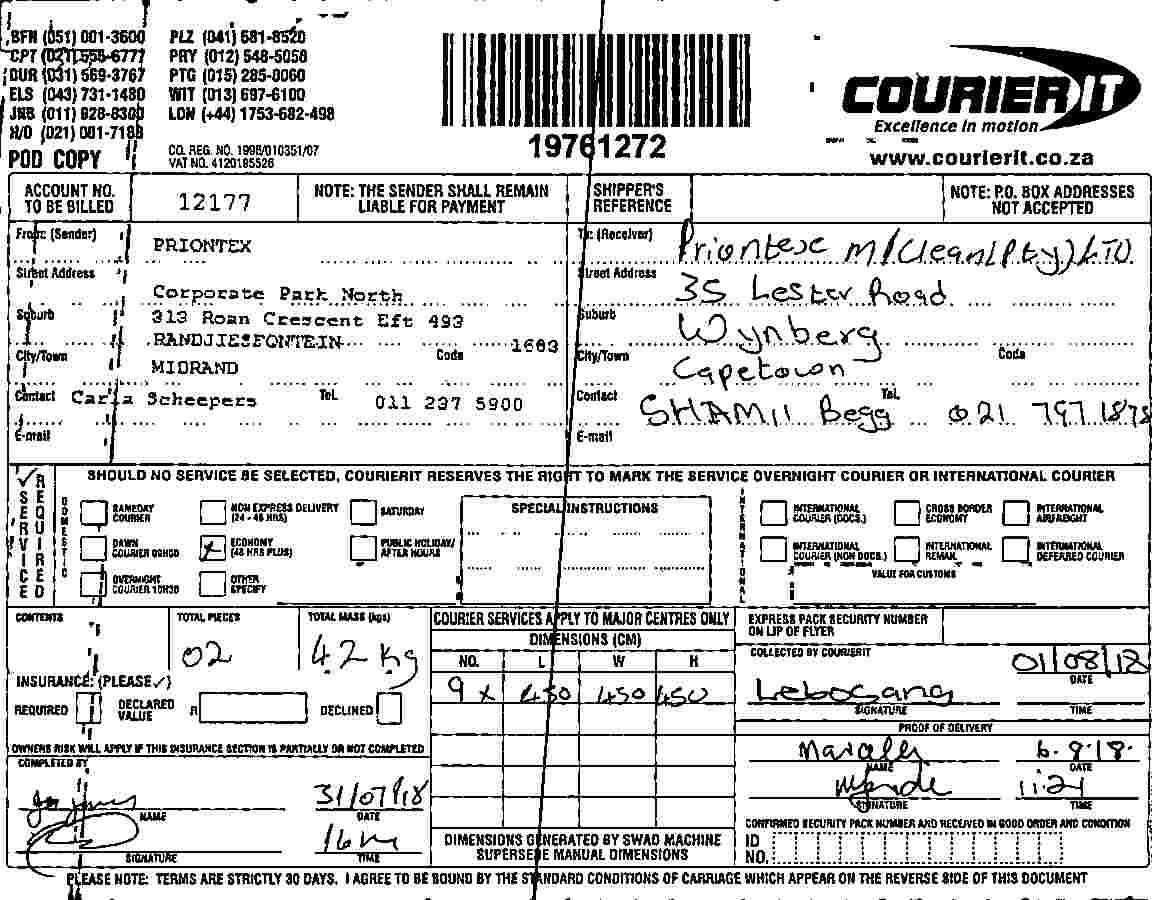 BFN (051) 001-3600 PLZ (041) 581-8520
CPT (021) 555-6777 PRY (012) 548-5058
DUR (031) 569-3767 PTG (015) 285-0060
ELS (043) 731-1480 WIT (013) 697-6100
JNB (011) 928-8300 LDN (+44) 1753-682-498
H/O (021) 001-7188
POD COPY
CO. REG. NO. 1998/010351/07
VAT NO. 4120185526
19761272
COURIER IT
Excellence in motion
www.courierit.co.za
ACCOUNT NO. TO BE BILLED 12177
NOTE: THE SENDER SHALL REMAIN LIABLE FOR PAYMENT
SHIPPER'S REFERENCE
NOTE: P.O. BOX ADDRESSES NOT ACCEPTED
From: (Sender) PRIONTEX
Street Address
Corporate Park North
Suburb 313 Roan Crescent Eft 493
RANDJIESFONTEIN Code 1683
City/Town MIDRAND
Contact Carla Scheepers Tel. 011 237 5900
E-mail
To: (Receiver) Priontex m/Clean(Pty)LTD
Street Address 35 Lester Road
Suburb Wynberg
City/Town Capetown Code
Contact SHAMIl Begg Tel. 021 797 1878
E-mail
SERVICE REQUIRED
SHOULD NO SERVICE BE SELECTED, COURIERIT RESERVES THE RIGHT TO MARK THE SERVICE OVERNIGHT COURIER OR INTERNATIONAL COURIER
DOMESTIC
SAMEDAY COURIER
NON EXPRESS DELIVERY (24 - 48 HRS)
SATURDAY
DAWN COURIER 09H00
ECONOMY (48 HRS PLUS)
PUBLIC HOLIDAY/ AFTER HOURS
OVERNIGHT COURIER 10H30
OTHER SPECIFY
SPECIAL INSTRUCTIONS
INTERNATIONAL
INTERNATIONAL COURIER (DOCS.)
CROSS BORDER ECONOMY
INTERNATIONAL AIRFREIGHT
INTERNATIONAL COURIER (NON DOCS.)
INTERNATIONAL REMAIL
INTERNATIONAL DEFERRED COURIER
VALUE FOR CUSTOMS
CONTENTS
TOTAL PIECES 02
TOTAL MASS (kgs) 42 kg
INSURANCE: (PLEASE ✓)
REQUIRED DECLARED VALUE R DECLINED
OWNERS RISK WILL APPLY IF THIS INSURANCE SECTION IS PARTIALLY OR NOT COMPLETED
COMPLETED BY
NAME
31/07/18
DATE
SIGNATURE
TIME
COURIER SERVICES APPLY TO MAJOR CENTRES ONLY
DIMENSIONS (CM)
NO. L W H
9 x 450 450 450
DIMENSIONS GENERATED BY SWAD MACHINE SUPERSEDE MANUAL DIMENSIONS
EXPRESS PACK SECURITY NUMBER ON LIP OF FLYER
COLLECTED BY COURIERIT
01/08/18
DATE
Lebogang
SIGNATURE
TIME
PROOF OF DELIVERY
NAME
6.8.18.
DATE
SIGNATURE
11:21
TIME
CONFIRMED SECURITY PACK NUMBER AND RECEIVED IN GOOD ORDER AND CONDITION
ID NO.
PLEASE NOTE: TERMS ARE STRICTLY 30 DAYS. I AGREE TO BE BOUND BY THE STANDARD CONDITIONS OF CARRIAGE WHICH APPEAR ON THE REVERSE SIDE OF THIS DOCUMENT